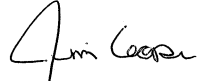 Jim Cooper